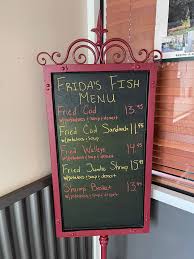 FRIDA'S FISH
MENU
Fried Cod 13.95
w/potatoes + soup + dessert
Fried Cod Sandwich 11.95
w/potatoes + soup
Fried Walleye 14.95
w/potatoes + soup + dessert
Fried Jumbo Shrimp 15
w/potatoes + soup + dessert
Shrimp Basket 13.95
w/potatoes + soup